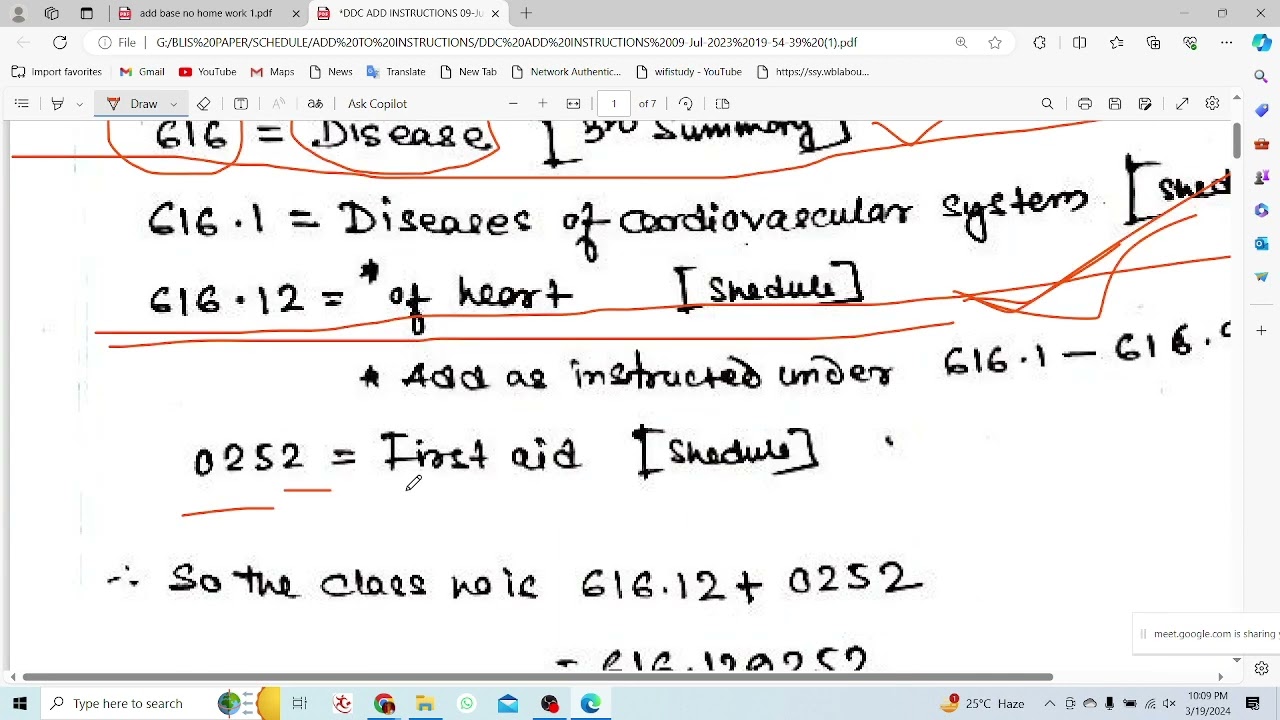 add base no home work 1.pdf
*DDC ADD INSTRUCTIONS 09-Ju
File G:/BLIS%20PAPER/SCHEDULE/ADD%20TO%20INSTRUCTIONS/DDC%20ADD%20INSTRUCTIONS%2009-Jul-2023%2019-54-39%20(1).pdf
Import favorites Gmail YouTube Maps News Translate New Tab Network Authentic... wifistudy - YouTube https://ssy.wblabou...
Draw Ask Copilot 1 of 7
616 = Disease [3rd Summary]
616.1 = Diseases of cardiovascular system [Shed
616.12 = * of heart [Shedule]
* Add as instructed under 616.1 — 616.9
0252 = First aid [Shedule]
∴ So the class no is 616.12 + 0252
= 616.120252
meet.google.com is sharing y
Type here to search
1
25°C Haze
10:09 PM
3/19/2024